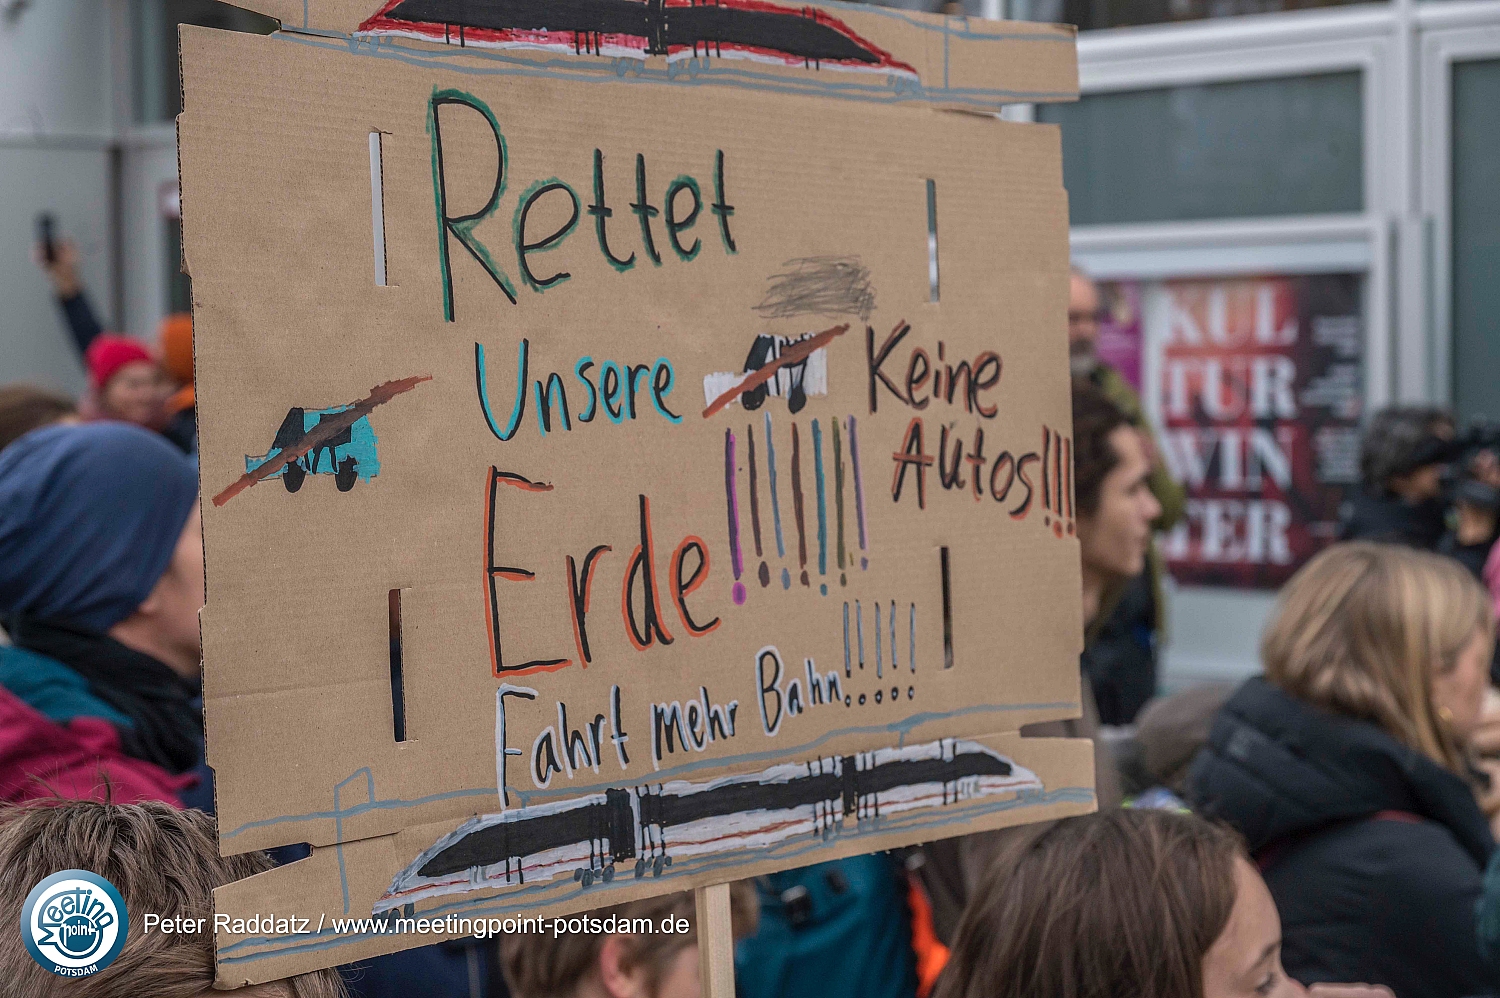 Rettet
Unsere
Erde!!!!!!!
Keine
Autos!!!
Fahrt mehr Bahn!!!!!
KUL
TUR
WIN
TER
Meeting
point
POTSDAM
Peter Raddatz / www.meetingpoint-potsdam.de